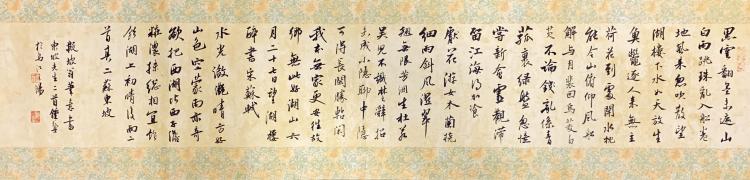 黑雲翻墨未遮山
白雨跳珠亂入船卷
地風来忽吹散望
湖樓下水如天放生
魚鱉逐人来無主
荷花到處開水枕
能令山俯仰風船
解与月裴回烏菱白
芡不論錢亂係青
菰裹綠盤忽憶
嘗新會靈觀滯
留江海得加餐
獻花游女木蘭橈
細雨斜風濕翠
翹無限芳洲生杜若
吳兒不識楚辭招
未成小隱聊中隱
可得長閑勝暫閑
我本無家更安往故
鄉無此好湖山六
月二十七日望湖樓
醉書宋蘇軾
水光瀲灩晴方好
山色空蒙雨亦奇
欲把西湖比西子淡
妝濃抹總相宜
飲湖上初晴後雨二
首其二蘇東坡
擬坡翁筆意書
東坡先生二首